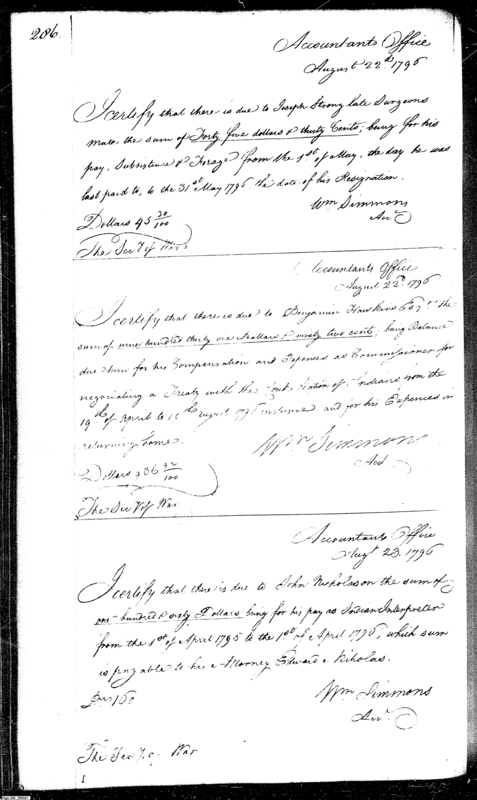 286.
Accountants Office
August 22d 1796
I certify that there is due to Joseph Strong late Surgeons
mate the sum of Forty five dollars & thirty Cents; being for his
pay, Subsistence & Forage from the 1st of May, the day he was
last paid to, to the 31st May 1796 the date of his Resignation.
Wm Simmons
Acct
Dollars 45 30/100
The Secy of War
Accountants Office
August 22d 1796
I certify that there is due to Benjamin Hawkins Esqr the
sum of nine hundred thirty six dollars & ninety two cents, being Balance
due him for his Compensation and Expences as Commissioner for
negociating a Treaty with the Nation of Indians from the
19th of April to 15th August 1796 inclusive and for his Expences in
returning home.
Wm Simmons
Acct
Dollars 936 92/100
The Secy of War
Accountants Office
Augt 23. 1796
I certify that there is due to John Nicholason the sum of
one hundred & sixty Dollars being for his pay as Indian Interpreter
from the 1st of April 1795 to the 1st of April 1796, which sum
is payable to his Attorney Edward Nicholas.
Wm Simmons
Acct
160
The Secy of War